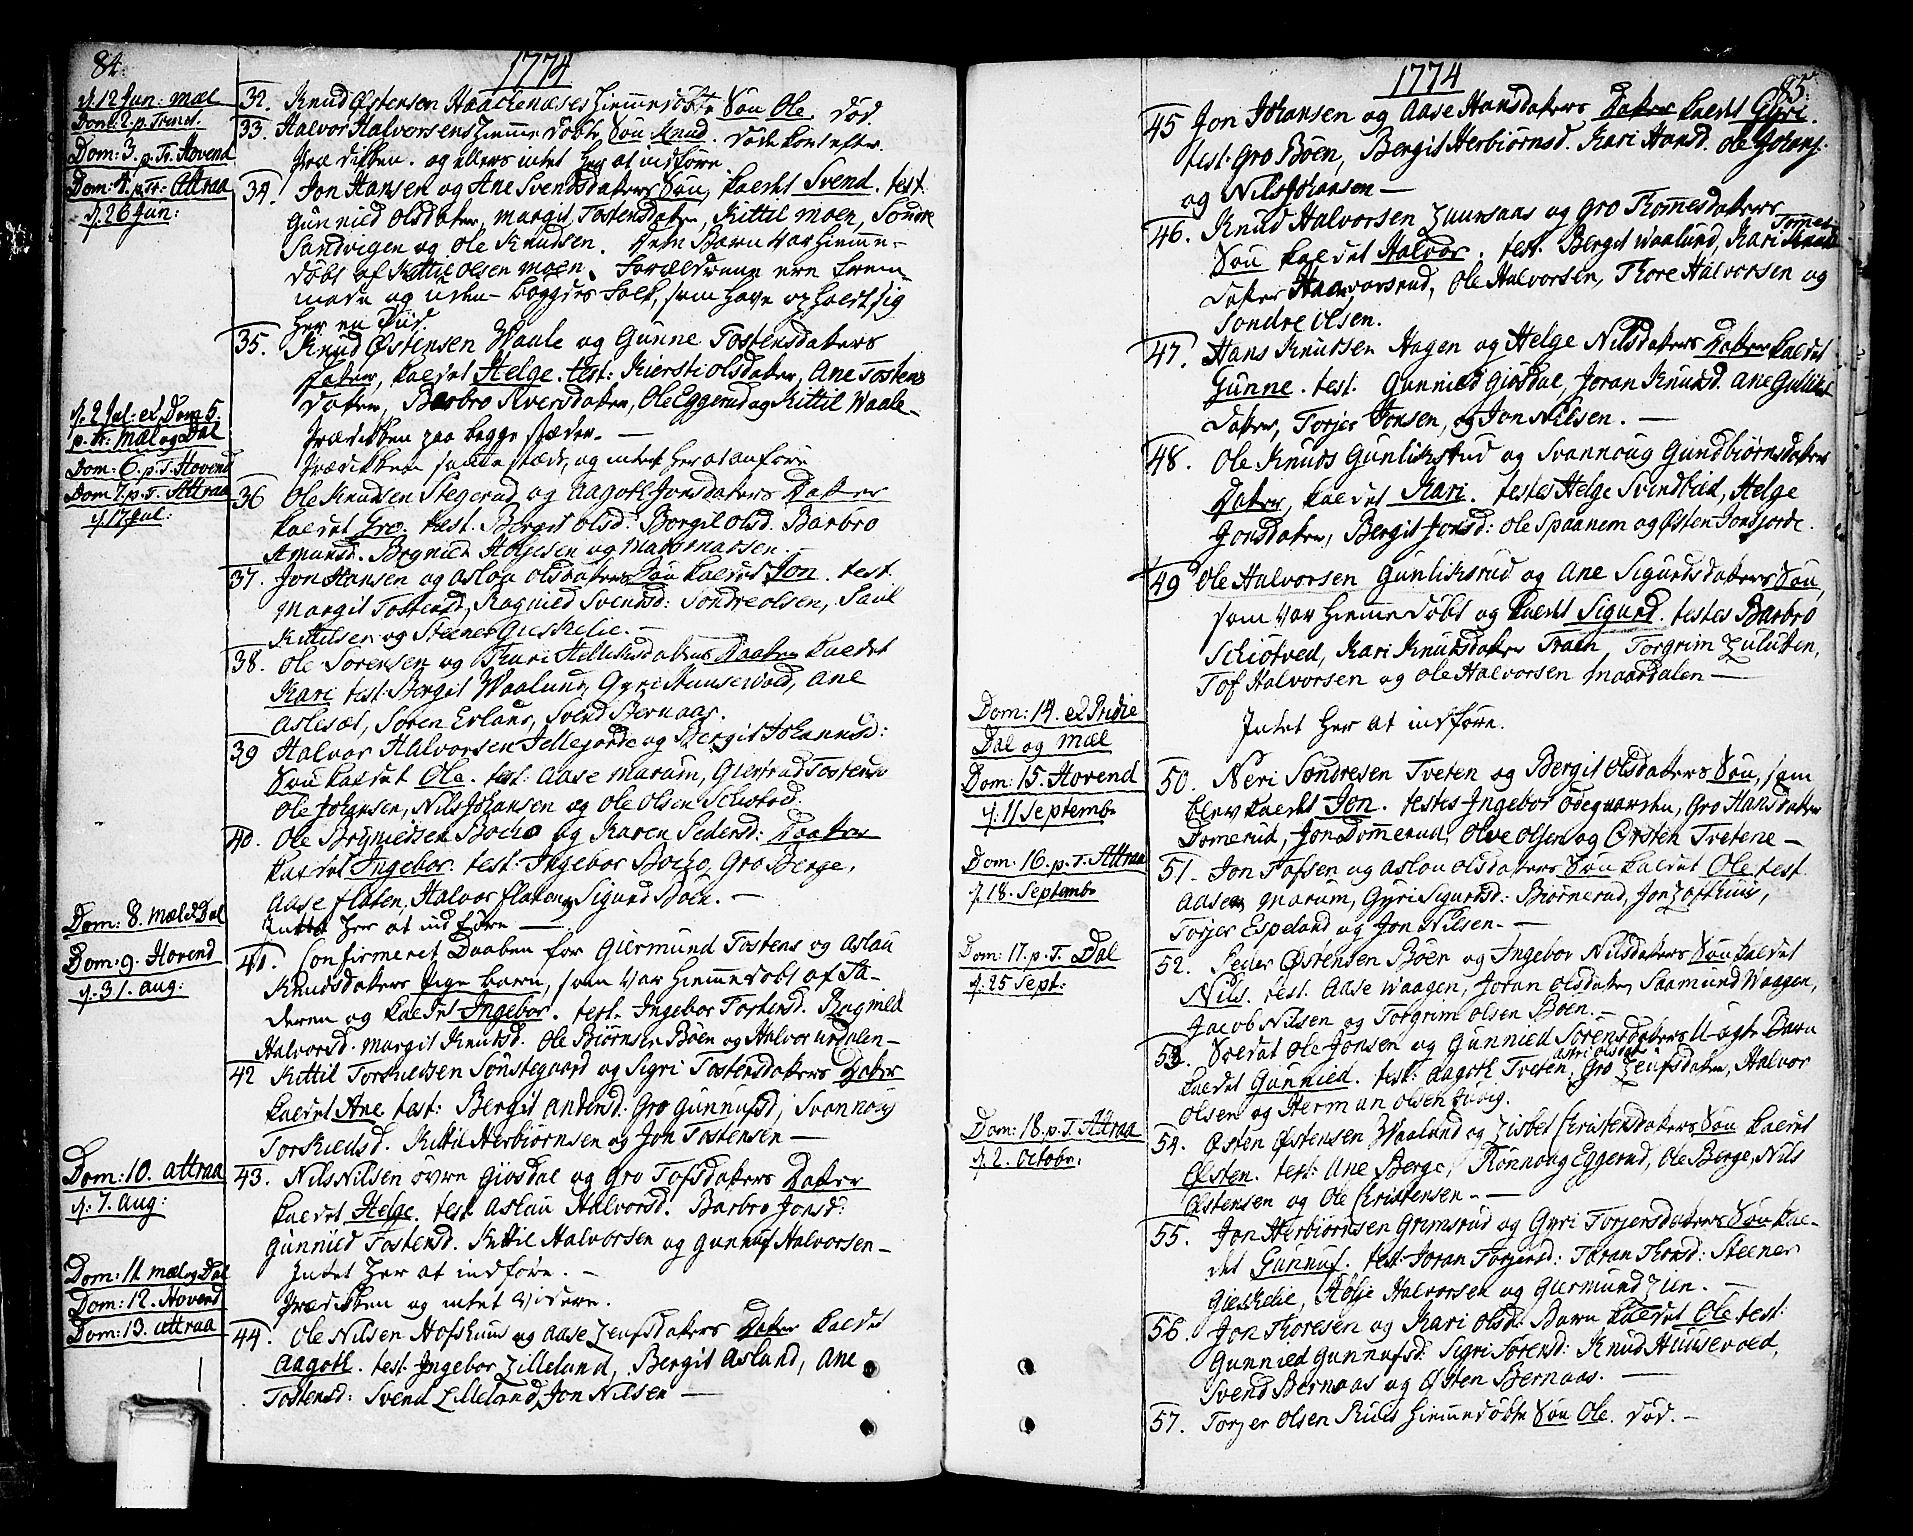 84.
1774
d. 12 Jun: Mæl
Dom: 2. p. Trinit.
Dom: 3. p. Tr. Hovend
Dom: 4. p. Tr. Attraa
d. 26 Jun:
32. Knud Østensen Haackenæses hiemmedøbte Søn Ole død
33. Halvor Halvorsens hiemmedøbte Søn Knud. døde kort efter.
Prædikken. og ellers intet her at indføre
34. Jon Hansen og Ane Svendsdaters Søn, kaldt Svend. test.
Gunnied Olsdater, Margit Tostensdater, Kittil Moen, Sondre
Sandvigen og Ole Knudsen. Dette Barn var hiemme-
døbt af Kittil Olsen Moen. Forældrene ere frem-
mede og uden-bøygdes Folk, som have opholdt sig
her en Tiid.
35. Knud Østensen Waale og Gunne Tostensdaters
Dater, kaldet Helge. test: Kiersti Olsdater, Ane Tostens
Dater, Barbro Iversdater, Ole Eggerud og Kittil Waale-
d. 2 Jul: et Dom 5.
p. Tr: Mæl og Dal
Prædikken paa begge stæder. —
Dom: 6. p. T. Hovend
Prædikken samme stæd, og intet her at anføre
Dom 7. p. T. Attraa
d. 17 Jul:
36 Ole Knudsen Stegerud og Aagoth Jonsdaters Dater
kaldet Gro. test. Bergit Olsd: Borgil Olsd. Barbro
Amunsd. Brynild Holjesen og
37. Jon Hansen og Aslou Olsdaters Søn kaldet Jon. test.
Margit Tostensd, Ragnied Svendsd: Sondre Olsen, Paul
Kittilsen og Steener Gieskelie. —
38. Ole Sørensen og Kari Hellicksdaters Daater kaldet
Kari test: Bergit Waalund, Gyri Huusevold, Ane
Aslesæt, Soren Erland, Svend Bernaas.
39 Halvor Halvorsen Jellejorde og Bergit Johannisd:
Søn kaldet Ole. test: Aase Marum, Giertrud Tostensd
Ole Johansen, Nils Johansen og Ole Olsen Schiotved.
40. Ole Brynieldsen Bocho og Karen Pedersd: Daater
kaldet Ingebor. test: Ingebor Bocho, Gro Berge,
Aase Flaten, Halvor Flaten og Sigurd Böen. —
Dom: 8. Mæl & Dal
Intet her at indføre —
Dom: 9. Hovend
d. 31. Aug:
41. Confirmeret Daaben for Giermund Tostens og Aslau
Knudsdaters Pigebarn, som var hiemmedøbt af Fa-
deren og kaldet Ingebor. test. Ingebor Tostensd. Ragnild
Halvorsd. Margit Knutsd. Ole Biørnsen Böen og Halvor Urdalen-
42 Kittil Torskieldsen Sønstegaard og Sigri Tostensdaters Dater
kaldet Ane test: Bergit Andersd: Gro Gunnufsd, Svannoug
Torskieldsd. Kittil Herbiørnsen og Jon Tostensen —
Dom: 10. Attraa
d. 7. Aug:
43. Nils Nilsen øvre Giosdal og Gro Tofsdaters Dater
kaldet Helge. test Aslau Halvorsd. Barbro Jonsd:
Gunnied Tostensd. Kittil Halvorsen og Gunnuf Halvorsen —
Dom: 11 Mæl og Dal
Intet her at indføre. —
Dom: 12. Hovend
Prædikken og intet videre.
Dom: 13. Attraa
44. Ole Nilsen Hofshuus og Aase Zeufsdaters Dater kaldet
Aagoth. test: Ingebor Lilleland, Bergit Asland, Ane
Tostensd: Svend Lilleland, Jon Nilsen —
1774
85.
45 Jon Johansen og Aase Hansdaters Dater kaldt Gyri.
test: Gro Böen, Bergit Herbiørnsd. Kari Hansd. Ole Johans:
og Nils Johansen —
46. Knud Halvorsen og Gro Tommesdaters
Søn kaldet Halvor. test. Bergit Waalund, Kari Tommes-
dater Haavarsrud, Ole Halvorsen, Thore Halvorsen og
Sondre Olsen.
47. Hans Knutsen Hagen og Helge Nilsdaters Dater kaldet
Gunne. test. Gunnied Giosdal, Joran Knutsd. Ane Gullics
Dater, Torjer Jonsen, og Jon Nilsen. —
48. Ole Knuds Gunlikstud og Svannoug Gundbiørnsdaters
Dater, kaldet Kari. testes Helge Svindbied, Helge
Jonsdater, Bergit Jonsd: Ole Spaanem og Østen Jonsjorde.
49 Ole Halvorsen Gunliksrud og Ane Sigurdsdaters Søn,
som var hiemmedøbt og kaldt Sigurd. testes Barbro
Schiøtved, Kari Knutsdater Traen, Torgrim Luluten,
Tof Halvorsen og Ole Halvorsen Maardalen —
Dom: 14. et Pridie
Dal og Mæl
Intet her at indføre.
Dom: 15. Hovend
d. 11 Septembr
50. Neri Sondresen Tveten og Bergit Olsdaters Søn, som
blev kaldt Jon. testes Ingebor Ødegaarden, Gro Hansdater
Domerud, Jon Dommerud, Olve Olsen og Ørsten Tvetene —
Dom: 16. p. T. Attraa
d. 18. Septembr
51. Jon Tofsen og Aslau Olsdaters Søn kaldet Ole test.
Aase Marum, Gyri Sigurdsd: Biørnerud, Jon Lofthuus,
Torjer Espeland og Jon Nilsen. —
Dom: 17. p. T. Dal
d. 25 Sept:
52. Peder Østensen Böen og Ingebor Nilsdaters Søn kaldet
Nils. test. Aase Waagen, Joran Olsdater, Saamund Waagen,
Jacob Nilsen og Torgrim Olsen Böen. —
53. Soldat Ole Jonsen og Gunnied Sörensdaters Uægte Barn
kaldet Gunnied. test: Aagoth Tveten, Astri Olsdat. Gro Zeufsdater, Halvor
Olsen og Herman Olsen
Dom: 18. p. T. Attraa
d. 2. Octobr.
54. Østen Østensen Waalund og Lisbet Christensdaters Søn kaldet
Østen. test: Ane Berge, Rønnoug Eggerud, Ole Berge, Nils
Østensen og Ole Christensen. —
55. Jon Herbiørnsen Grimsrud og Gyri Torjersdaters Søn kal-
det Gunnuf. test: Joran Torjersd: Taran Thorsd: Steener
Gieskelie, Holje Halvorsen og Gurmund Lien. —
56. Jon Thoresen og Kari Olsd: Barn kaldet Ole test:
Gunnied Gunnufsd: Sigri Sörensd: Knud Huusevold,
Svend Bernaas og Østen Bernaas. —
57. Torjer Olsen Ruds hiemmedøbte Søn Ole. død. —